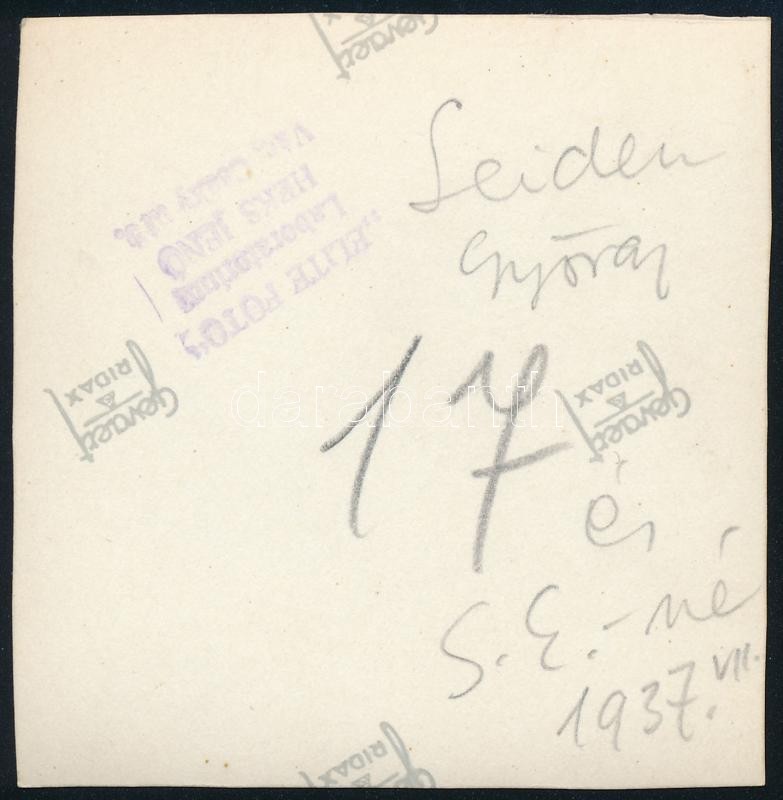 Gevaert
RIDAX
"ELITE FOTO"
Laboratorium
HEKS JENŐ
VÁC, Csáky u.
Seiden
György
17
Gevaert
RIDAX
Gevaert
RIDAX
darabanth
és
S. E.-né
1937. VII.
Gevaert
RIDAX